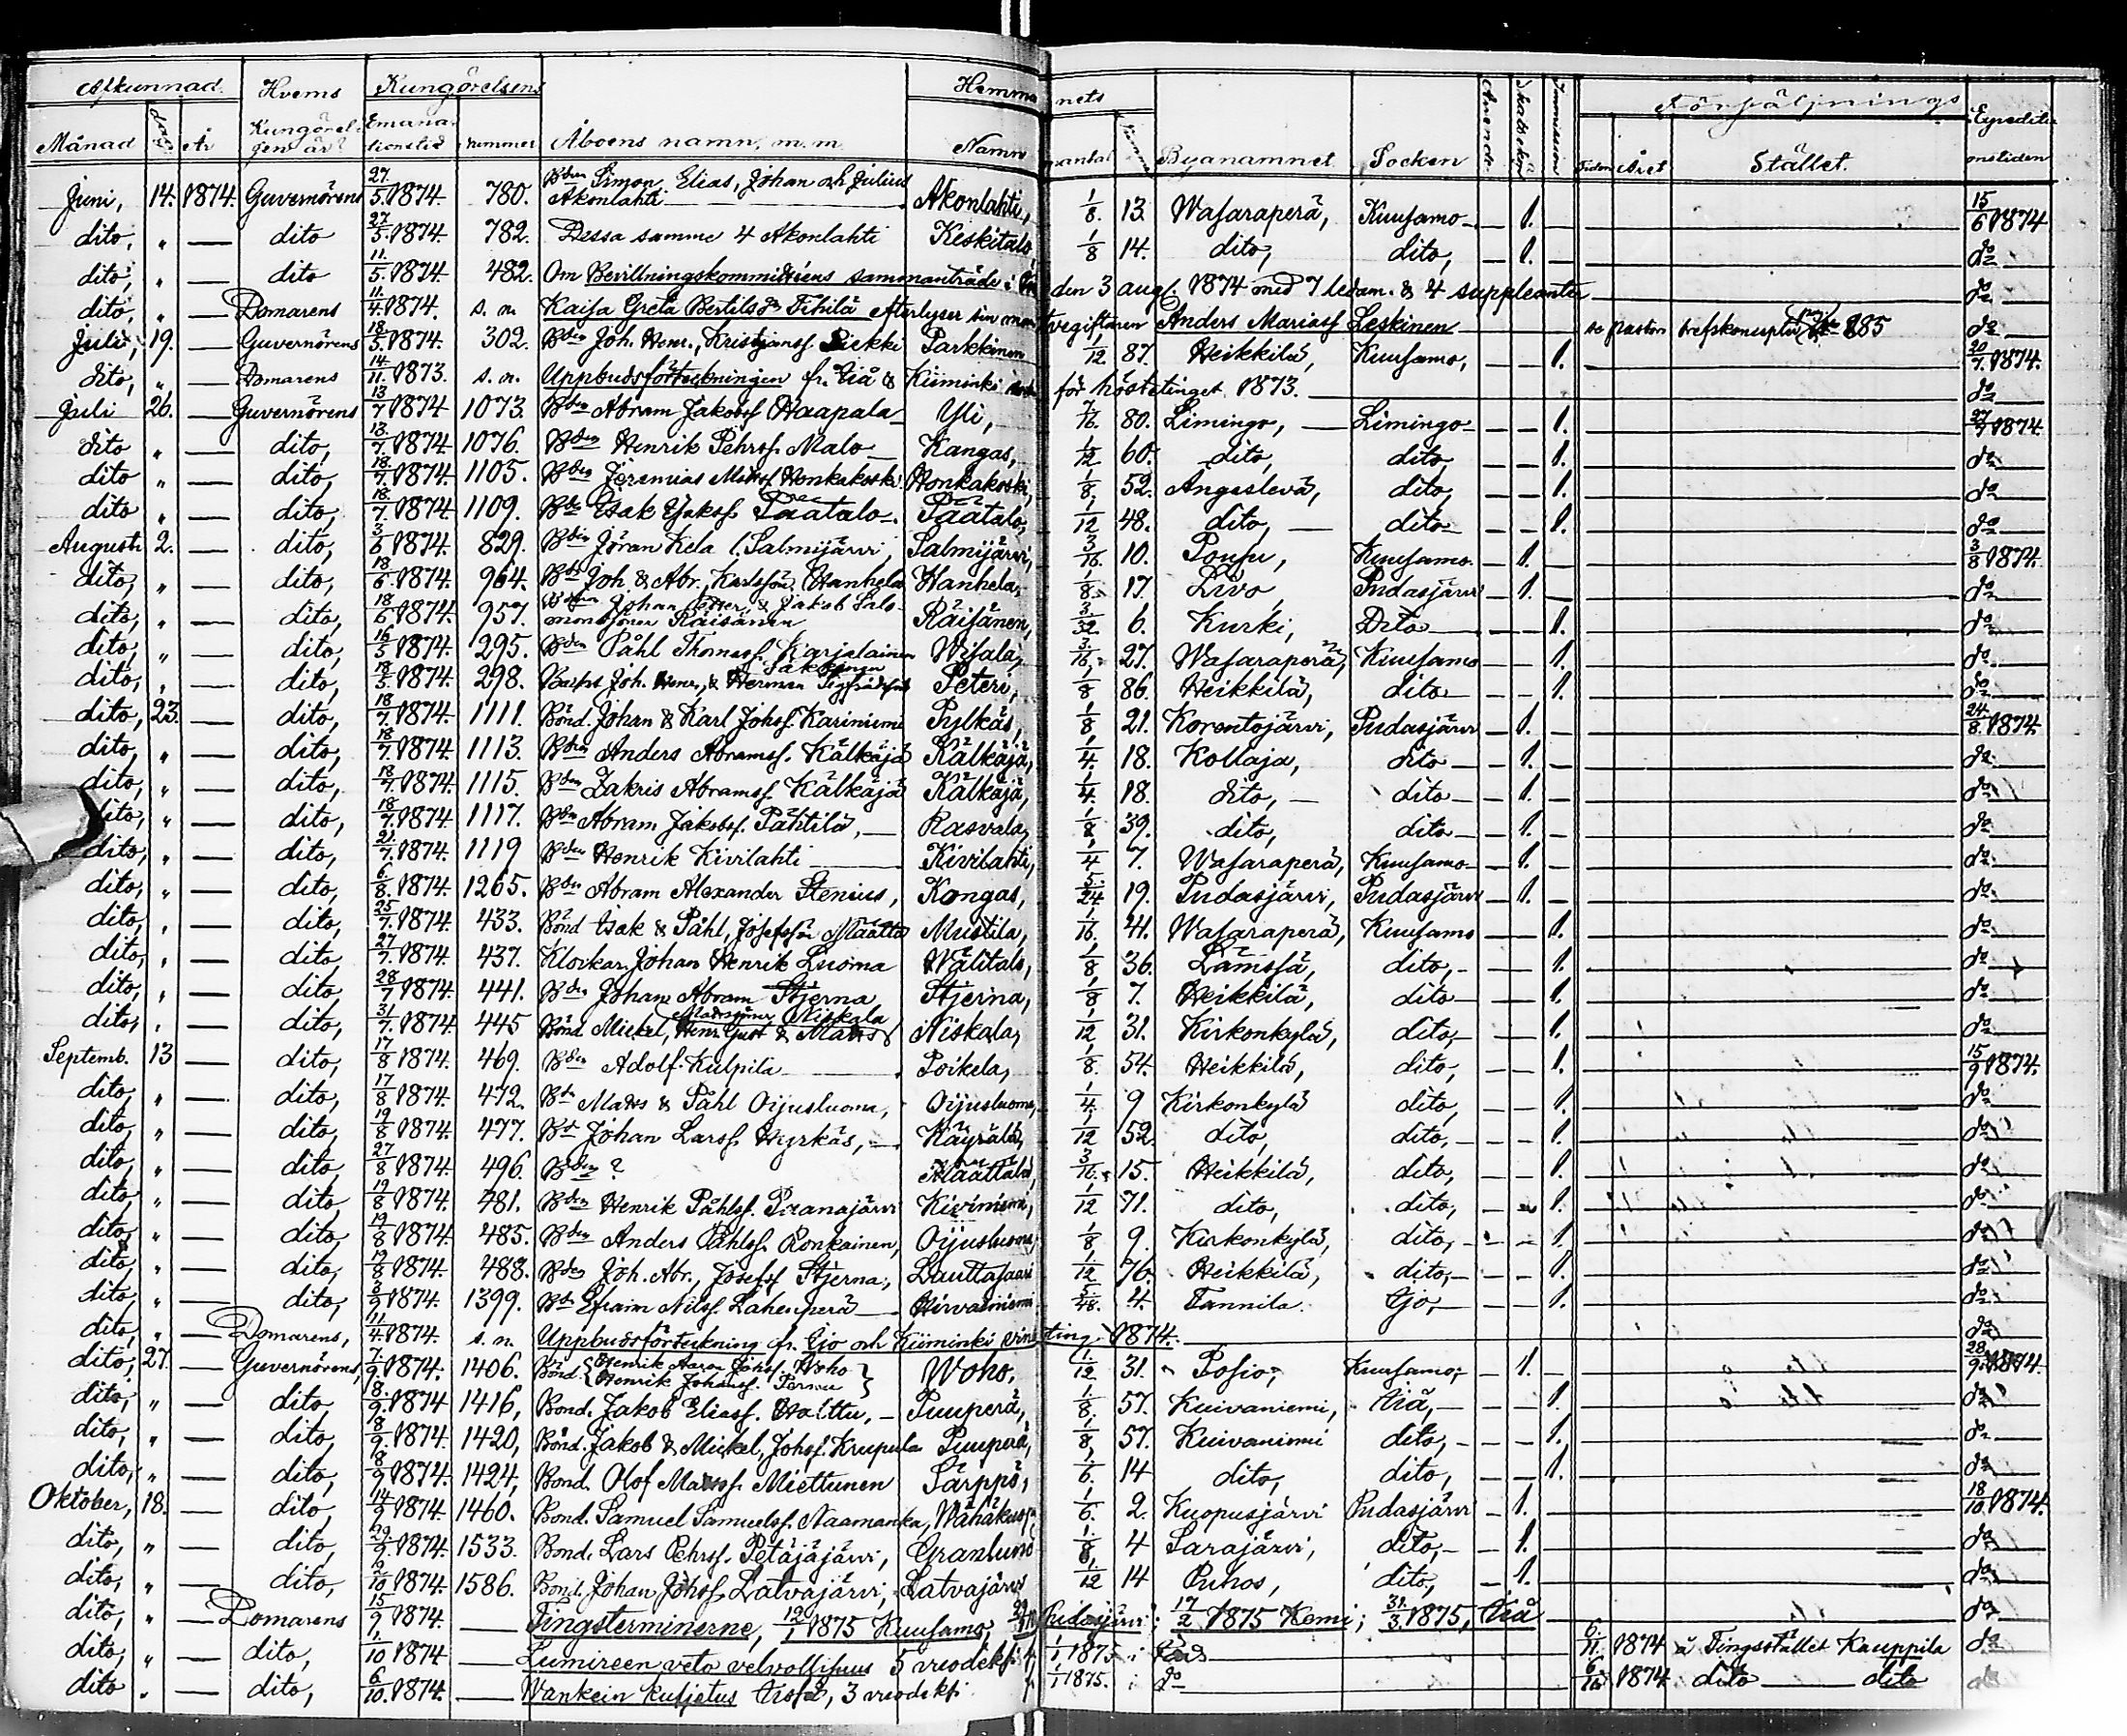 Afkunnad. Hvems Kungörelsens Hemmanets Arrende Skatteköp Immission Försäljnings Expeditionstiden
Månad dag År Kungörelsen är? Emanationstid nummer Åboens namn, m. m. Namn mantal Byanamnet Socken Tiden Året Stället.
Juni, 14. 1874. Guvernörens 27/5. 1874. 780. Bdn Simon, Elias, Johan och Julius
Akonlahti Akonlahti, 1/8. 13. Wasaraperä, Kuusamo 1. 15/6 1874
dito, " dito 27/5. 1874. 782. Dessa samme 4 Akonlahti Keskitalo, 1/8 14. dito, dito, 1. do
dito, " dito 11./5. 1874. 482. Om Bevillningskommitténs sammanträde i den 3 aug. 1874 med 7 ledam. & 4 suppleanter do
dito, " Domarens 11./4. 1874. s. n. Kaisa Greta Bertilsdr efterlyser sin Anders Mariasf. Leskinen 885 do
Juli, 19. Guvernörens 18/5. 1874. 302. Bdn Joh. Henr., Kristjansf. Parkkinen 1/12 87. Heikkilä, Kuusamo, 1. 20/7. 1874.
dito, " Domarens 14./11. 1873. s. n. Uppbudsförteckningen fr. Kiiminki för hösttinget 1873. do
Juli 26. Guvernörens 13/7 1874 1073. Bdn Abram Jakobsf. Haapala Yli, 80. Limingo, Limingo 1. 27/7 1874
dito " dito, 18./7. 1874 1076. Bdn Henrik Pehrsf. Malo Kangas, 1/12 60. dito, dito 1. do
dito " dito, 18./7. 1874 1105. Bdn Jeremias Honkakoski Honkakoski, 1/8, 52. Angeslevä, dito, 1. do
dito " dito, 18./7. 1874 1109. Bdn Isak Päätalo Päätalo, 1/12 48. dito, dito 1. do
Augusti 2. dito, 3/6 1874. 829. Bdn Jöran Kela l. Salmijärvi, Salmijärvi, 3/16. 10. Kuusamo 1. 3/8 1874.
dito, " dito, 18/6. 1874. 964. Bdn Joh & Abr. Karlsson Hanhela Hanhela, 1/8. 17. Livo Pudasjärvi 1. do
dito, " dito, 18/6 1874. 957. Johan Petter, & Jakob Salo-
monsöner Räisänen Räisänen, 3/32. 6. Kurki, Dito 1. do
dito, " dito, 16/5 1874. 295. Bdn Påhl Thomasf. Karjalainen 3/16. 27. Wasaraperä, Kuusamo 1. do
dito, " dito, 18/5. 1874. 298. Joh. Henr., & Herman Peteri, 1/8 86. Heikkilä, dito 1. do
dito, 23. dito, 18/7 1874 1111. Bönd. Johan & Karl Johsf. Kariniemi Pylkäs, 1/8 21. Korentojärvi, Pudasjärvi 1. 24/8. 1874.
dito, " dito, 18/7. 1874 1113. Bdn Anders Abramsf. Kälkäjä Kälkäjä, 1/4. 18. Kollaja, dito 1. do
dito, " dito, 18/7. 1874 1115. Bdn Zakris Abramsf. Kälkäjä Kälkäjä, 1/4. 18. dito, dito 1. do
dito, " dito, 18/7. 1874 1117. Bdn Abram Jakobsf. Pähtilä, Rasvala, 1/8 39. dito, dito 1. do
dito, " dito, 21./7. 1874. 1119 Bdn Henrik Kivilahti Kivilahti, 1/4 7. Wasaraperä, Kuusamo 1. do
dito, " dito, 6./8. 1874 1265. Bdn Abram Alexander Stenius, Kongas, 5/24 19. Pudasjärvi, Pudasjärvi 1. do
dito, " dito, 25/7. 1874 433. Bönd Isak & Påhl, Josefsön Määttä Mustila, 1/16. 41. Wasaraperä, Kuusamo 1. do
dito, " dito 27/7. 1874 437. Klockar. Johan Henrik Luoma Wälitalo, 1/8 36. Lämssä, dito, 1. do
dito, " dito 28/7 1874. 441. Bdn Johan Abram Stjerna Stjerna, 1/8 7. Heikkilä, dito 1. do
Matssöner Niskala
dito, " dito, 31/7. 1874 445 Bönd Mickel, Henr. Gust & Mats Niskala, 1/12 31. Kirkonkylä, dito, 1. do
Septemb. 13 dito, 17/8 1874. 469. Bdn Adolf Kulpila Poikela, 1/8. 54. Heikkilä, dito, 1. 15/9 1874.
dito, " dito, 17/8 1874. 472. Bdn Mats & Påhl Oijusluoma, Oijusluoma, 1/4. 9 Kirkonkylä dito, 1. do
dito, " dito, 19/8 1874. 477. Bd Johan Larsf. Hyrkäs, Käyrälä, 1/12 52. dito, dito, 1. do
dito, " dito, 27/8 1874. 496. Bdn ? Määttälä, 3/16. 15. Heikkilä, dito, 1. do
dito, " dito, 19/8 1874. 481. Bdn Henrik Påhlsf. Paanajärvi Kiviniemi, 1/12 71. dito, dito, 1. do
dito, " dito, 19/8 1874. 485. Bdn Anders Påhlsf. Ronkainen, Oijusluoma, 1/8 9. Kirkonkylä, dito, 1. do
dito, " dito, 19/8 1874. 488. Bdn Joh. Abr., Josefsf. Stjerna, Lauttasaari 1/12 76. Heikkilä, dito, 1. do
dito, " dito, 3/9 1874. 1399. Bdn Efraim Nilsf. Lahenperä Hirvasniemi 5/48. 4. Tannila Ijo, 1. do
dito, " Domarens, 11/4. 1874. s. n. Uppbudsförteckning fr. Ijo och Kiiminki ting 1874. do
dito, 27. Guvernörens, 7./9. 1874. 1406. Bönd. { Henrik Aaron Johsf. Woho
Henrik Johansf. Pernu } Woho. 1/12 31. Posio, Kuusamo, 1. 28/9. 1874.
dito, " dito, 8./9. 1874 1416, Bond. Jakob Eliasf. Halttu, Puuperä, 1/8. 57. Kuivaniemi, 1. do
dito, " dito, 8/9. 1874 1420, Bönd. Jakob & Mickel, Johsf. Krupula Puuperä, 1/8, 57. Kuivaniemi dito, 1. do
dito, " dito, 8/9 1874. 1424, Bond. Olof Matsf. Miettunen Särppö, 1/6. 14 dito, dito, 1. do
Oktober, 18. dito, 14/9 1874. 1460. Bond. Samuel Samuelsf. Naamanka, 1/6. 2. Kuopusjärvi Pudasjärvi 1. 18/10. 1874.
dito, " dito, 29./9. 1874. 1533. Bond. Lars Pehrsf. Petäjäjärvi, Granlund 1/8 4 Sarajärvi, dito, 1. do
dito, " dito, 9/10 1874. 1586. Bond. Johan Johsf. Latvajärvi, Latvajärvi 1/12 14 Puhos, dito, 1. do
dito, " Domarens 15/9. 1874. Tingsterminerne, 1875 Kuusamo, Pudasjärvi; 17/2 1875 Kemi; 31./3. 1875, do
dito, " dito, 1./10 1874 Lumireen veto 5 vuodeksi 1/1 1875 i 6./11. 1874 å Tingsstället Kauppila do
dito " dito, 6/10. 1874. Wankein kuljetus 3 vuodeksi 1/1 1875. i do 1874 dito dito do